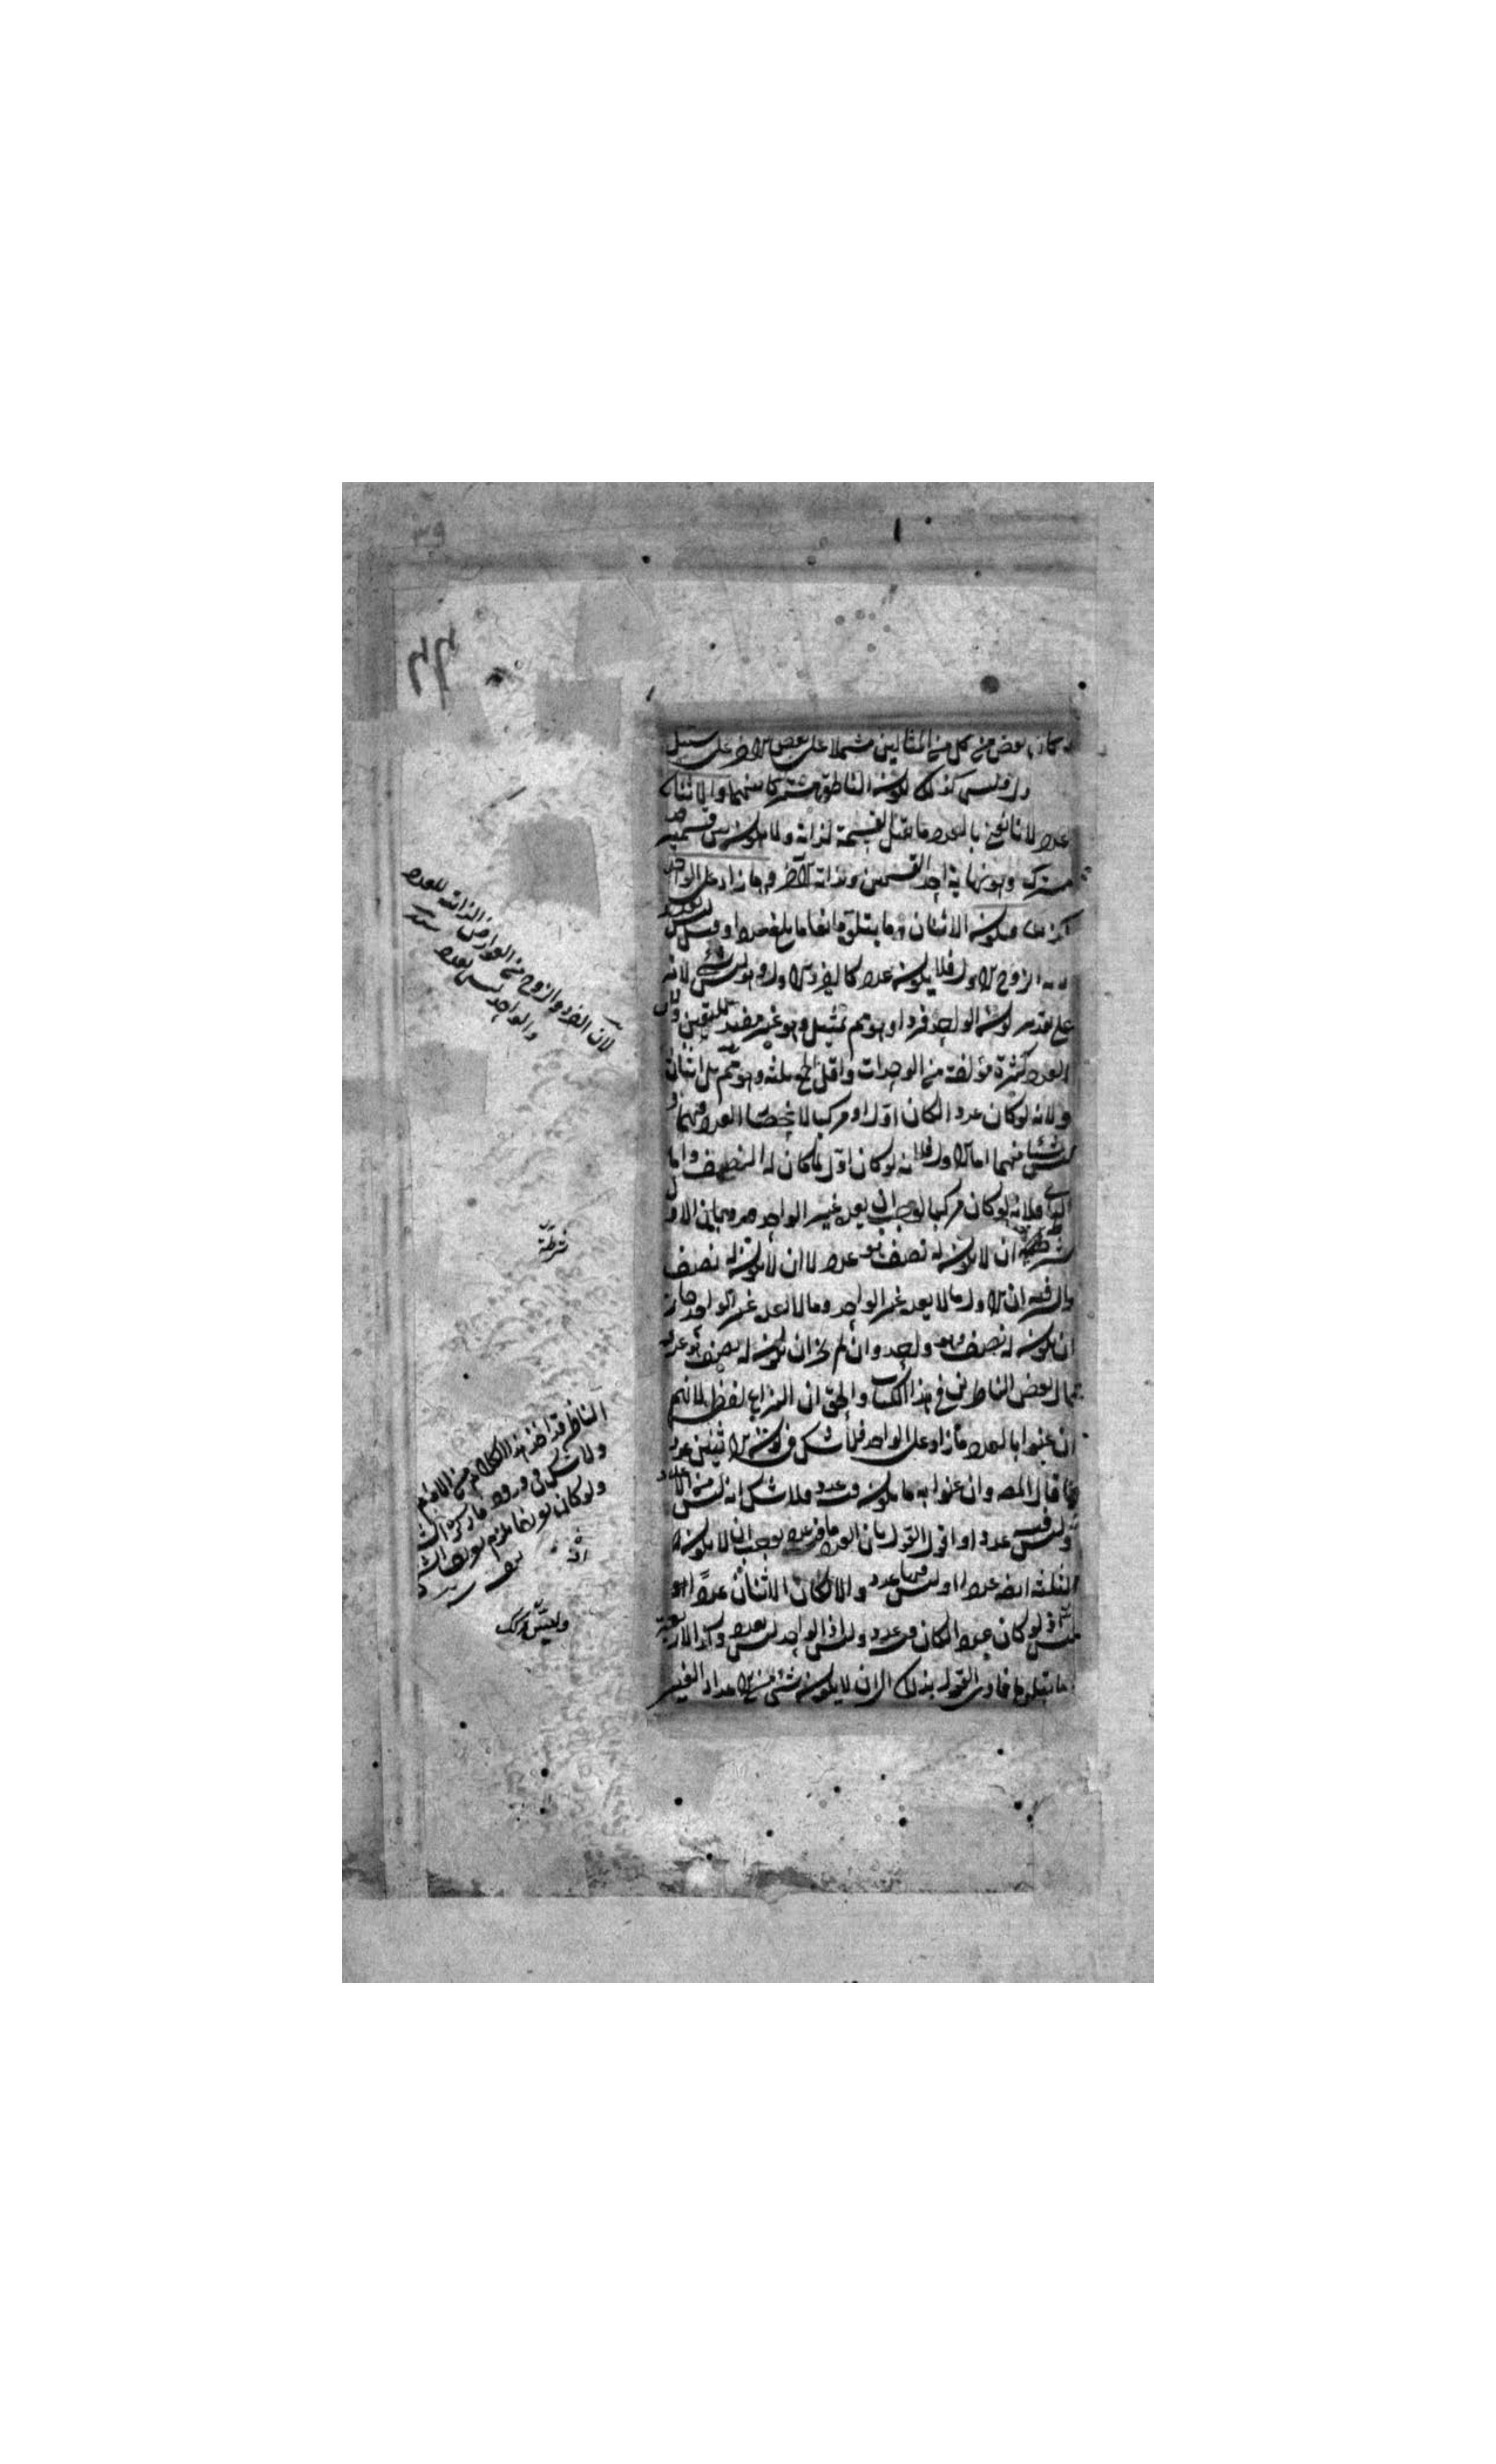 كان بعض من كل من المثالين مشتملا على بعض الاخر على سبيل
وليس كذلك لكون الناطق مشتركا بينهما والاثنان
عدد لانا نعني بالعدد ما يقبل القسمة لذاته ولا يكون بين قسميه حد
مشترك وهو نهاية احد القسمين وبداية الآخر وما زاد على الواحد
كذلك فيكون الاثنان وما يتلوه ايضا ما بلغ عددا وقيل ليس بعدد
لانه الزوج الاول فلا يكون عددا كالفرد الاول وهو ليس بشئ لانه
على تقدير كون الواحد فردا وهم تمثيل وهو غير مفيد لليقين ولان
العدد كثرة مؤلفة من الوحدات واقل الجمع ثلثة وهو وهم بل اثنان
ولانه لو كان عددا لكان اوّل او مركبا لانحصار العدد فيهما و
ليس شيئا منهما اما الاول فلانه لو كان اول لما كان له النصف واما
الثاني فلانه لو كان مركبا لوجب ان يعده غير الواحد وهو وهم لان الاول
شرطه ان لا يكون له نصف هو عدد لا ان لا يكون له نصف
والسر فيه ان الاول ما لا يعده غير الواحد وما لا يعده غير الواحد جاز
ان يكون له نصف وهو واحد وان لم يجز ان يكون له نصف هو عدد
قال بعض الناظرين في هذا الكتاب والحق ان النزاع لفظي لانهم
ان عنوا بالعدد ما زاد على الواحد فلا شك في كون الاثنين عددا
كما قال المصـ وان عنوا به ما يكون فيه عدد فلا شك انه ليس من الاعداد
وليس فيه عدد اذ اقول القول بان العدد ما فيه عدد يوجب ان لا يكون
الثلثة ايضا عددا اذ ليس فيها عدد والا لكان الاثنان عددا وهو
ليس اذ لو كان عددا لكان فيه عدد وليس اذ الواحد ليس بعدد وكذا الاربعة
وما يتلوها فاذن القول بذلك الى ان لا يكون شئ من الاعداد الغير
لان الفرد والزوج من العوارض الذاتية للعدد
والواحد ليس بعدد
شرطه
الناظر قد اخذ هذا الكلام من الامام
ولا شك في ورود ما ذكره الش
ولو كان
وليس مركب